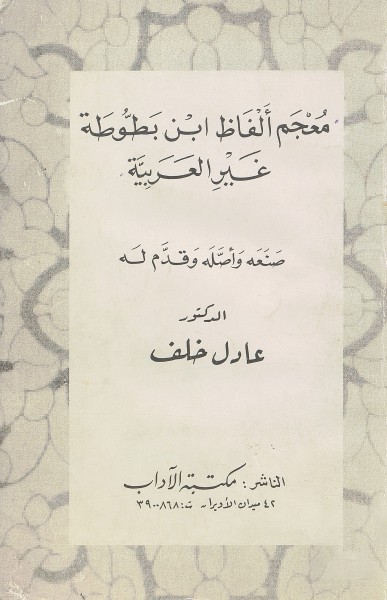 مُعْجَم أَلْفَاظ ابْن بَطُّوطَة
غَيْرِ العَرَبِيَّة
صَنَعَه وَأصَّلَه وَقدَّم لَه
الدكتور
عادل خلف
الناشر: مكتبة الآداب
٤٢ ميدان الأوبرا ت: ٣٩٠٠٨٦٨